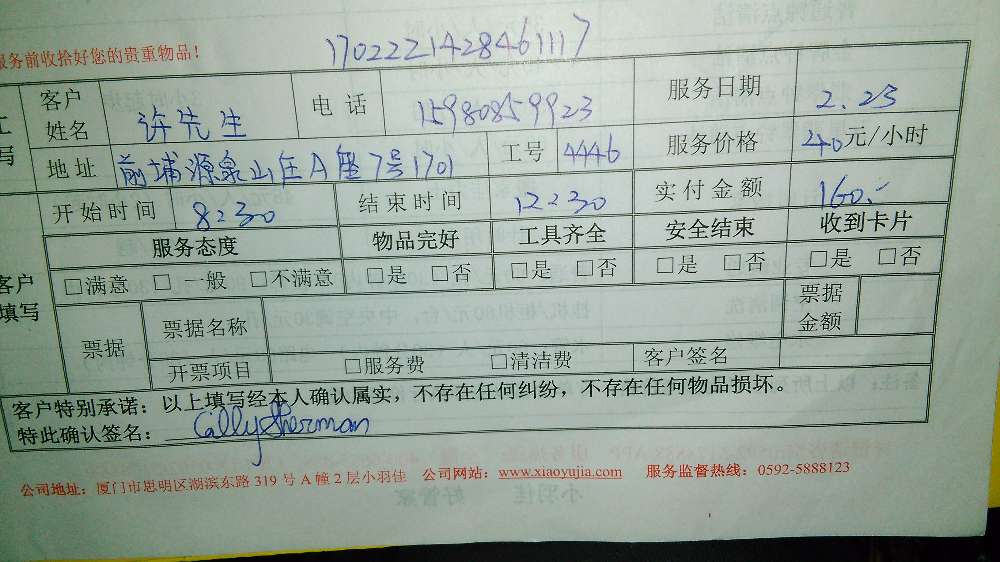 服务前收拾好您的贵重物品！
1702221428461117
客户姓名 许先生 电话 15980859923 服务日期 2.23
地址 前埔源泉山庄A座7号1701 工号 4446 服务价格 40元/小时
开始时间 8:30 结束时间 12:30 实付金额 160.-
服务态度 物品完好 工具齐全 安全结束 收到卡片
客户填写
□满意 □一般 □不满意 □是 □否 □是 □否 □是 □否 □是 □否
票据 票据名称 票据金额
开票项目 □服务费 □清洁费 客户签名
客户特别承诺：以上填写经本人确认属实，不存在任何纠纷，不存在任何物品损坏。
特此确认签名： Cally Sherman
公司地址：厦门市思明区湖滨东路319号A幢2层小羽佳 公司网站：www.xiaoyujia.com 服务监督热线：0592-5888123